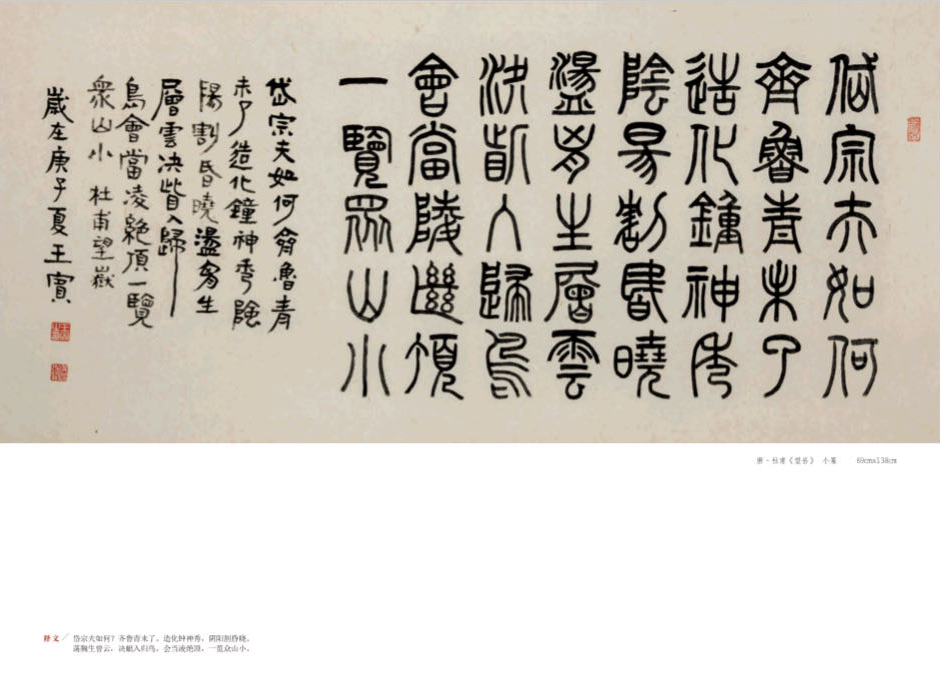 岱宗夫如何
齊魯青未了
造化鍾神秀
陰昜割昏曉
盪匈生層雲
決眥入歸鳥
會當陵絕頂
一覽眾山小
岱宗夫如何齊魯青
未了造化鐘神秀陰
陽割昏曉盪匈生
層雲決眥入歸
鳥會當凌絕頂一覽
衆山小 杜甫望嶽
歲在庚子夏王賓
唐·杜甫《望岳》 小篆 69cmx138cm
释文／ 岱宗夫如何？齐鲁青未了。造化钟神秀，阴阳割昏晓。
荡胸生曾云，决眦入归鸟。会当凌绝顶，一览众山小。